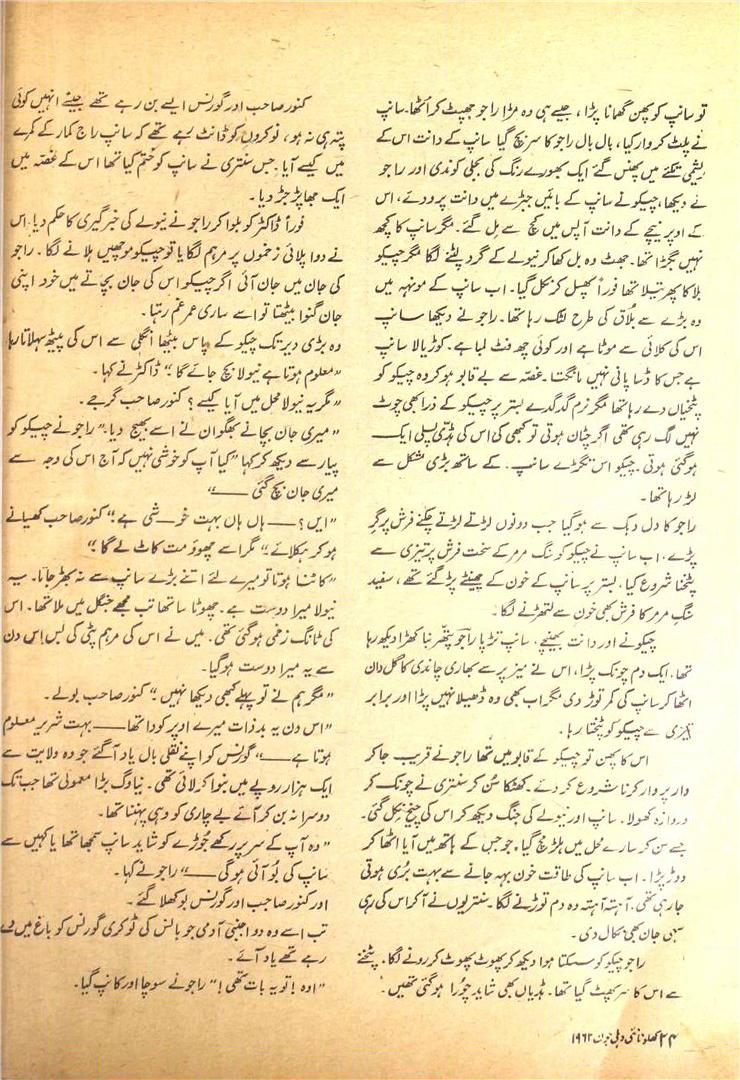 تو سانپ کو پھن گھمانا پڑا، جیسے ہی وہ مڑا راجو جھپٹ کر اُٹھا۔ سانپ
نے پلٹ کر وار کیا، بال بال راجو کا سر بچ گیا سانپ کے دانت اس کے
ریشمی تکئے میں پھنس گئے ایک بھورے رنگ کی بجلی کوندی اور راجو
نے دیکھا، چیکو نے سانپ کے بائیں جبڑے میں دانت پرو دئے، اس
کے اوپر نیچے کے دانت آپس میں کچ سے مل گئے۔ مگر سانپ کا کچھ
نہیں بگڑا تھا۔ جھٹ وہ بل کھا کر نیولے کے گرد لپٹنے لگا مگر چیکو
بلا کا پھرتیلا تھا فوراً پھسل کر نکل گیا۔ اب سانپ کے مونہہ میں
وہ بڑے سے بُلاق کی طرح لٹک رہا تھا۔ راجو نے دیکھا سانپ
اس کی کلائی سے موٹا ہے اور کوئی چھ فٹ لمبا ہے۔ کوڑیالا سانپ
ہے جس کا ڈسا پانی نہیں مانگتا۔ غصّہ سے بے قابو ہو کر وہ چیکو کو
پٹخنیاں دے رہا تھا مگر نرم گدگدے بستر پر چیکو کے ذرا بھی چوٹ
نہیں لگ رہی تھی اگر چٹان ہوتی تو کبھی کی اس کی ہڈی پسلی ایک
ہو گئی ہوتی۔ چیکو اس تگڑے سانپ۔ کے ساتھ بڑی مشکل سے
لڑ رہا تھا۔
راجو کا دل دہک سے ہو گیا جب دونوں لڑتے لڑتے چکنے فرش پر گر
پڑے، اب سانپ نے چیکو کو سنگ مرمر کے سخت فرش پر تیزی سے
پٹخنا شروع کیا، بستر پر سانپ کے خون کے چھینٹے پڑ گئے تھے، سفید
سنگِ مرمر کا فرش بھی خون سے لتھڑنے لگا۔
چیکو نے اور دانت بھینچے، سانپ تڑپا راجو پتھر بنا کھڑا دیکھ رہا
تھا۔ ایک دم چونک پڑا، اس نے میز پر سے بھاری چاندی کا گل دان
اٹھا کر سانپ کی کمر توڑ دی مگر اب بھی وہ ڈھیلا نہیں پڑا اور برابر
تیزی سے چیکو کو پٹختا رہا۔
اس کا پھن تو چیکو کے قابو میں تھا راجو نے قریب جا کر
وار پر وار کرنا شروع کر دئے۔ کھٹکا سُن کر سنتری نے چونک کر
دروازہ کھولا۔ سانپ اور نیولے کی جنگ دیکھ کر اس کی چیخ نکل گئی۔
جسے سن کر سارے محل میں ہلڑ مچ گیا۔ جو جس کے ہاتھ میں آیا اٹھا کر
دوڑ پڑا۔ اب سانپ کی طاقت خون بہہ جانے سے بہت بُری ہوتی
جا رہی تھی۔ آہستہ آہستہ وہ دم توڑنے لگا۔ سنتریوں نے آ کر اس کی رہی
سہی جان بھی نکال دی۔
راجو چیکو کو سسکتا ہوا دیکھ کر پھوٹ پھوٹ کر رونے لگا۔ پٹخنے
سے اس کا سر پھٹ گیا تھا۔ ہڈیاں بھی شاید چُورا ہو گئی تھیں۔
کنور صاحب اور گورنس ایسے بن رہے تھے جیسے انہیں کوئی
پتہ ہی نہ ہو، نوکروں کو ڈانٹ رہے تھے کہ سانپ راج کمار کے کمرے
میں کیسے آیا۔ جس سنتری نے سانپ کو ختم کیا تھا اس کے غصّہ میں
ایک جھاپڑ جڑ دیا۔
فوراً ڈاکٹر کو بلوا کر راجو نے نیولے کی خبر گیری کا حکم دیا۔ اس
نے دوا پلائی زخموں پر مرہم لگایا تو چیکو مونچھیں ہلانے لگا۔ راجو
کی جان میں جان آئی اگر چیکو اس کی جان بچاتے میں خود اپنی
جان گنوا بیٹھتا تو اسے ساری عمر غم رہتا۔
وہ بڑی دیر تک چیکو کے پاس بیٹھا انگلی سے اس کی پیٹھ سہلاتا رہا
"معلوم ہوتا ہے نیولا بچ جائے گا۔" ڈاکٹر نے کہا۔
"مگر یہ نیولا محل میں آیا کیسے؟ کنور صاحب گرجے۔
"میری جان بچانے بھگوان نے اسے بھیج دیا۔" راجو نے چیکو کو
پیار سے دیکھ کر کہا "کیا آپ کو خوشی نہیں کہ آج اس کی وجہ سے
میری جان بچ گئی ——"
"ایں؟ — ہاں ہاں بہت خوشی ہے۔" کنور صاحب کھسیانے
ہو کر ہکلائے۔" مگر اسے چھوؤ مت کاٹ لے گا۔"
"کاٹنا ہوتا تو میرے لئے اتنے بڑے سانپ سے نہ بھڑ جاتا۔ یہ
نیولا میرا دوست ہے۔ چھوٹا سا تھا تب مجھے جنگل میں ملا تھا۔ اس
کی ٹانگ زخمی ہو گئی تھی۔ میں نے اس کی مرہم پٹی کی بس اس دن
سے یہ میرا دوست ہو گیا۔
"مگر ہم نے تو پہلے کبھی دیکھا نہیں۔" کنور صاحب بولے۔
"اس دن یہ بدذات میرے اوپر کودا تھا —— بہت شریر معلوم
ہوتا ہے ——" گورنس کو اپنے نقلی بال یاد آ گئے جو وہ ولایت سے
ایک ہزار روپے میں بنوا کر لائی تھی۔ نیا وگ بڑا معمولی تھا جب تک
دوسرا نہ بن کر آئے بے چاری کو وہی پہننا تھا۔
"وہ آپ کے سر پر رکھے جُوڑے کو شاید سانپ سمجھا تھا یا کہیں سے
سانپ کی بُو آئی ہوگی ——" راجو نے کہا۔
اور کنور صاحب اور گورنس بوکھلا گئے۔
تب اسے وہ دو اجنبی آدمی جو بانس کی ٹوکری گورنس کو باغ میں دے
رہے تھے یاد آئے۔
"اوہ! تو یہ بات تھی!" راجو نے سوچا اور کانپ گیا۔
۲۴ کھلونا نئی دہلی جون ۱۹۶۲